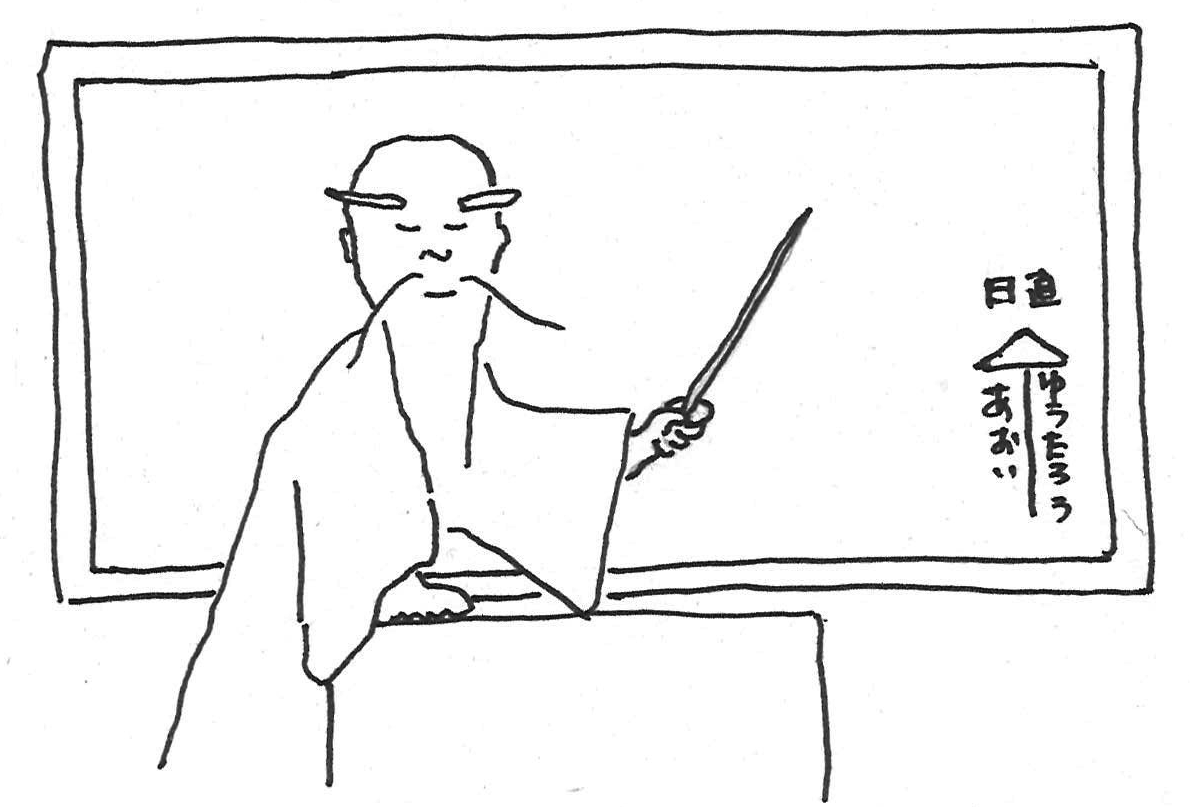 日直
ゆうたろう
あおい